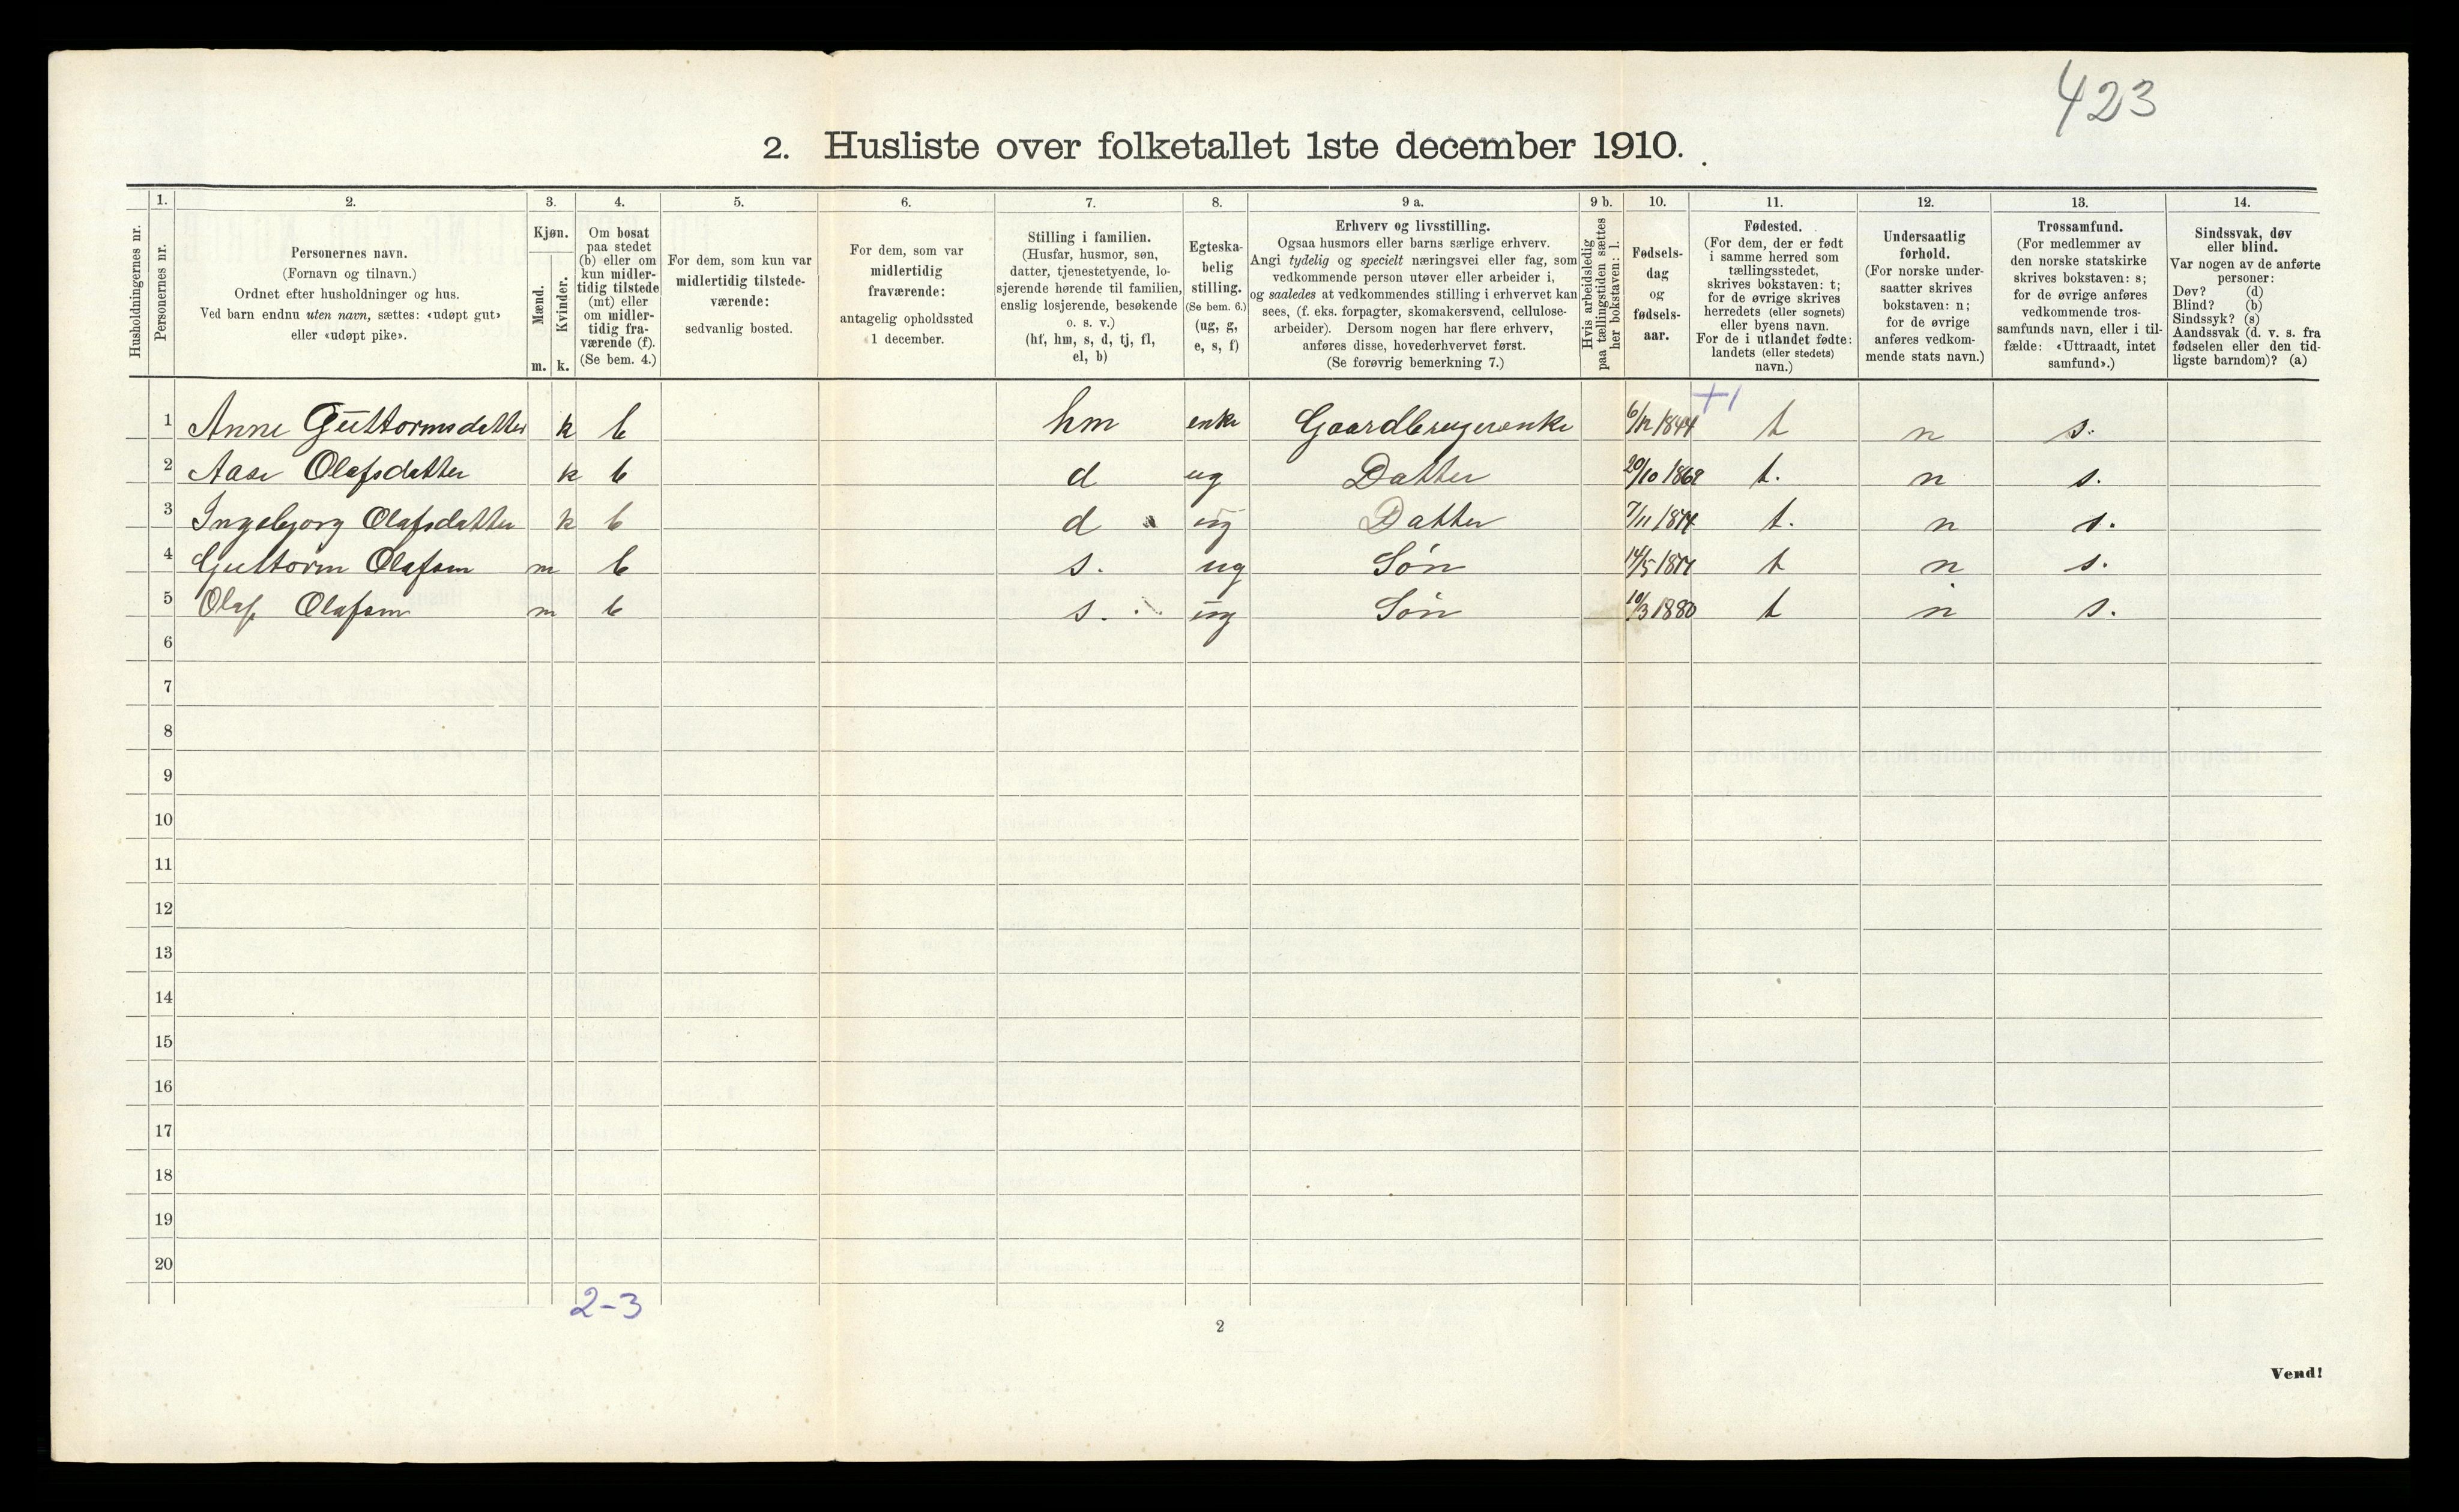 423
2. Husliste over folketallet 1ste december 1910.
Husholdningernes nr.
1.
Personernes nr.
2.
Personernes navn.
(Fornavn og tilnavn.)
Ordnet efter husholdninger og hus.
Ved barn endnu uten navn, sættes: «udøpt gut»
eller «udøpt pike».
3.
Kjøn.
Mænd.
Kvinder.
m. k.
4.
Om bosat
paa stedet
(b) eller om
kun midler-
tidig tilstede
(mt) eller
om midler-
tidig fra-
værende (f).
(Se bem. 4.)
5.
For dem, som kun var
midlertidig tilstede-
værende:
sedvanlig bosted.
6.
For dem, som var
midlertidig
fraværende:
antagelig opholdssted
1 december.
7.
Stilling i familien.
(Husfar, husmor, søn,
datter, tjenestetyende, lo-
sjerende hørende til familien,
enslig losjerende, besøkende
o. s. v.)
(hf, hm, s, d, tj, fl,
el, b)
8.
Egteska-
belig
stilling.
(Se bem. 6.)
(ug, g,
e, s, f)
9 a.
Erhverv og livsstilling.
Ogsaa husmors eller barns særlige erhverv.
Angi tydelig og specielt næringsvei eller fag, som
vedkommende person utøver eller arbeider i,
og saaledes at vedkommendes stilling i erhvervet kan
sees, (f. eks. forpagter, skomakersvend, cellulose-
arbeider). Dersom nogen har flere erhverv,
anføres disse, hovederhvervet først.
(Se forøvrig bemerkning 7.)
9 b.
Hvis arbeidsledig
paa tællingstiden sættes
her bokstaven: l.
10.
Fødsels-
dag
og
fødsels-
aar.
11.
Fødested.
(For dem, der er født
i samme herred som
tællingsstedet,
skrives bokstaven: t;
for de øvrige skrives
herredets (eller sognets)
eller byens navn.
For de i utlandet fødte:
landets (eller stedets)
navn.)
12.
Undersaatlig
forhold.
(For norske under-
saatter skrives
bokstaven: n;
for de øvrige
anføres vedkom-
mende stats navn.)
13.
Trossamfund.
(For medlemmer av
den norske statskirke
skrives bokstaven: s;
for de øvrige anføres
vedkommende tros-
samfunds navn, eller i til-
fælde: «Uttraadt, intet
samfund».)
14.
Sindssvak, døv
eller blind.
Var nogen av de anførte
personer:
Døv? (d)
Blind? (b)
Sindssyk? (s)
Aandssvak (d. v. s. fra
fødselen eller den tid-
ligste barndom)? (a)
+1
1 Anne Guttormsdatter k b hm enke Gaardbrugerenke 6/12 1844 t n s.
2 Aase Olafsdatter k b d ug Datter 20/10 1868 t. n s.
3 Ingebjorg Olafsdatter k b d ug Datter 7/11 1874 t. n s.
4 Guttorm Olafsen m b s. ug Søn 14/5 t n s.
5 Olaf Olafsen m b s. ug Søn 10/3 1880 t n s.
6
7
8
9
10
11
12
13
14
15
16
17
18
19
20
2-3
2
Vend!